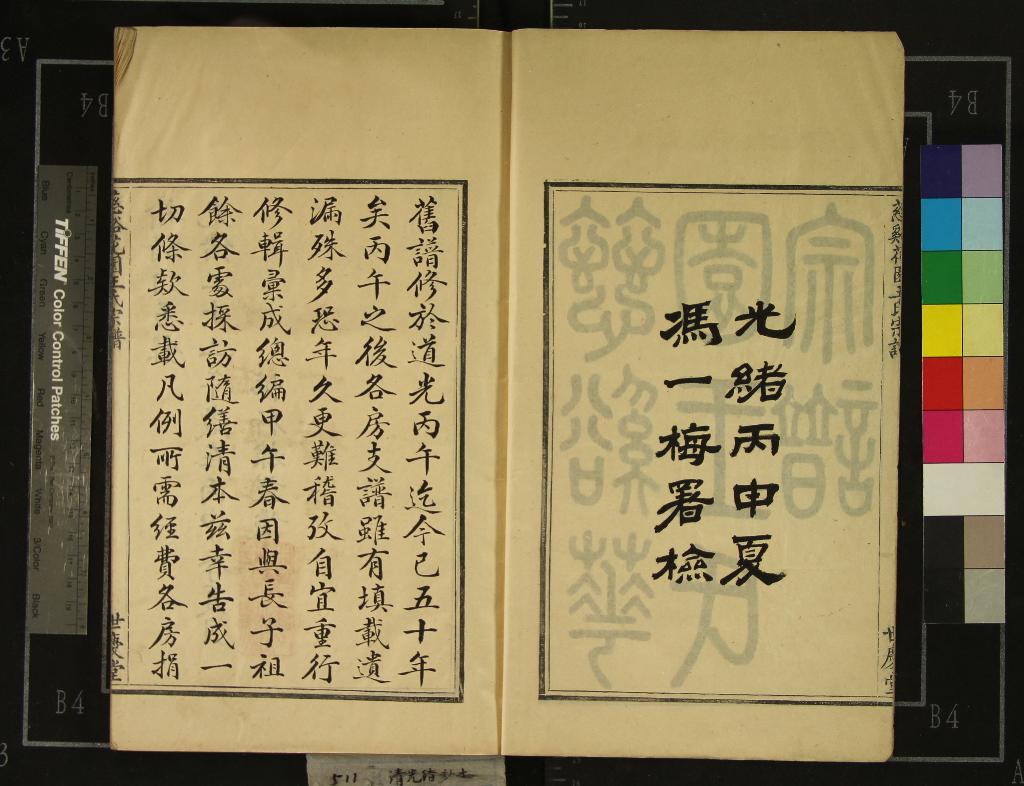 光緒丙申夏
馮一梅署檢
舊譜修於道光丙午迄今已五十年
矣丙午之後各房支譜雖有填載遺
漏殊多恐年久更難稽攷自宜重行
修輯彙成總編甲午春因與長子祖
餘各處採訪隨繕清本茲幸告成一
切條欵悉載凡例所需經費各房捐
世慶堂
世慶堂
TIFFEN Color Control Patches
Blue
Cyan
Green
Yellow
Red
Magenta
White
3/Color
Black
B4
B4
B4
B4
A3
511